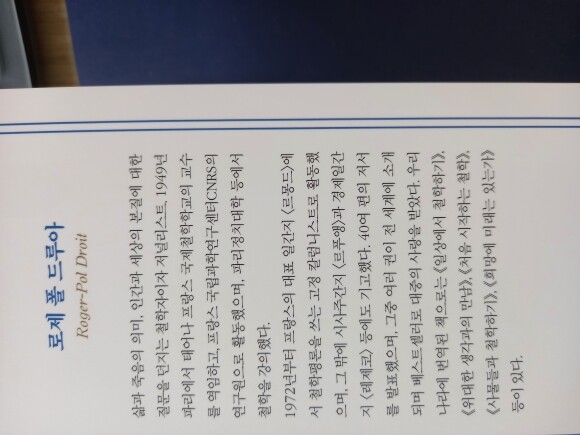 로제 폴 드루아
Roger-Pol Droit
삶과 죽음의 의미, 인간과 세상의 본질에 대한
질문을 던지는 철학자이자 저널리스트. 1949년
파리에서 태어나 프랑스 국제철학학교의 교수
를 역임하고, 프랑스 국립과학연구센터CNRS의
연구원으로 활동했으며, 파리정치대학 등에서
철학을 강의했다.
1972년부터 프랑스의 대표 일간지 〈르몽드〉에
서 철학평론을 쓰는 고정 칼럼니스트로 활동했
으며, 그 밖에 시사주간지 〈르푸앵〉과 경제일간
지 〈레제코〉 등에도 기고했다. 40여 편의 저서
를 발표했으며, 그중 여러 권이 전 세계에 소개
되며 베스트셀러로 대중의 사랑을 받았다. 우리
나라에 번역된 책으로는 《일상에서 철학하기》,
《위대한 생각과의 만남》, 《처음 시작하는 철학》,
《사물들과 철학하기》, 《희망에 미래는 있는가》
등이 있다.